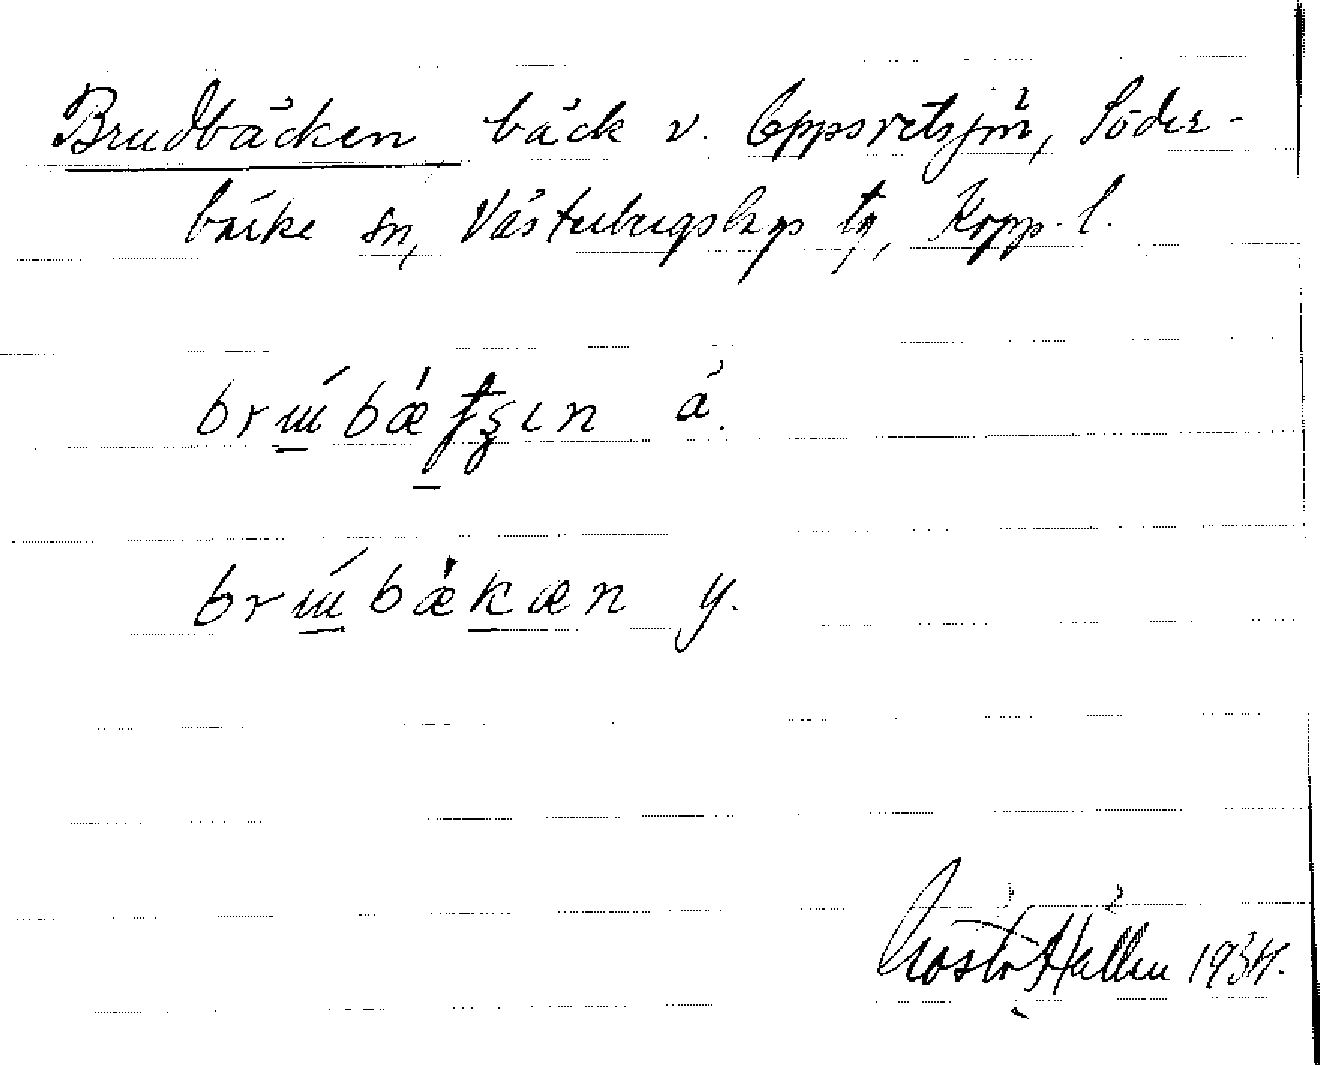 Brudbäcken bäck v. Uppsveltsjön, Söder-
bärke sn, Västerbergslags tg, Kopp. l.
brɯ́bæ̀ʈʂɩn ä.
brɯ́bæ̀kæn y.
Gösta Hallén 1934.